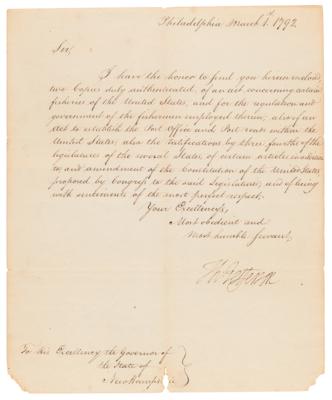 Philadelphia March 1st. 1792.
Sir,
I have the honor to send you herein enclosed,
two Copies duly authenticated, of an act concerning certain
fisheries of the United States, and for the regulation and
government of the fishermen employed therein; also of an
Act to establish the Post Office and Post roads within the
United States; also the ratifications by three fourths of the
legislatures of the several States, of certain articles in addition
to, and amendment of the Constitution of the United States,
proposed by Congress to the said Legislatures, and of being
with sentiments of the most perfect respect,
Your Excellency's,
Most obedient and
most humble Servant,
Th: Jefferson
To His Excellency the Governor of
the State of
New Hampshire